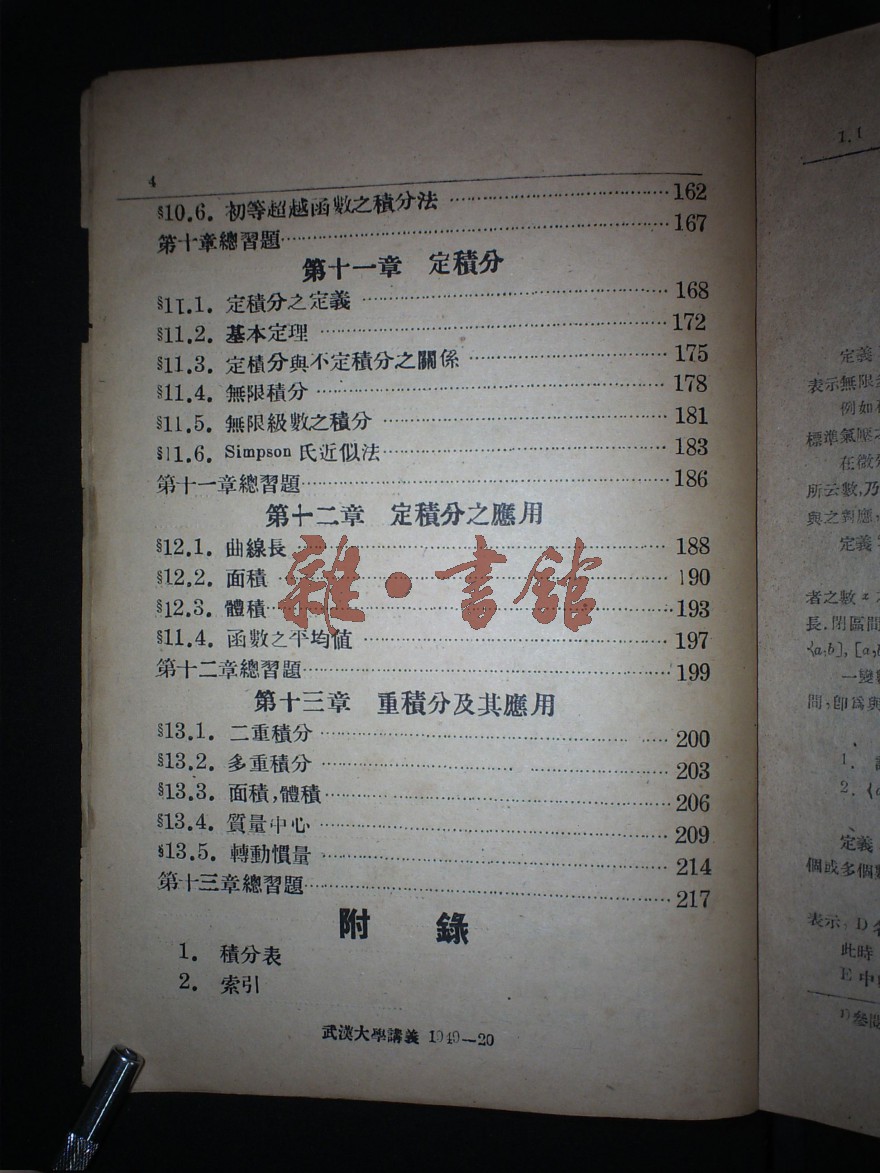 4
§10.6. 初等超越函數之積分法 ........ 162
第十章總習題 ........ 167
第十一章 定積分
§11.1. 定積分之定義 ........ 168
§11.2. 基本定理 ........ 172
§11.3. 定積分與不定積分之關係 ........ 175
§11.4. 無限積分 ........ 178
§11.5. 無限級數之積分 ........ 181
§11.6. Simpson 氏近似法 ........ 183
第十一章總習題 ........ 186
第十二章 定積分之應用
§12.1. 曲線長 ........ 188
§12.2. 面積 ........ 190
§12.3. 體積 ........ 193
§11.4. 函數之平均值 ........ 197
第十二章總習題 ........ 199
第十三章 重積分及其應用
§13.1. 二重積分 ........ 200
§13.2. 多重積分 ........ 203
§13.3. 面積,體積 ........ 206
§13.4. 質量中心 ........ 209
§13.5. 轉動慣量 ........ 214
第十三章總習題 ........ 217
附 錄
1. 積分表
2. 索引
武漢大學講義 1949—20
雜·書館
1.1
定義
表示無限
例如
標準氣壓
在微
所云數,乃
與之對應,
定義
者之數 x
長.閉區間
⟨a,b⟩, [a,b
一變
間,卽爲與
1.
2.
定義
個或多個
表示, D
此時
E 中
1) 參閱